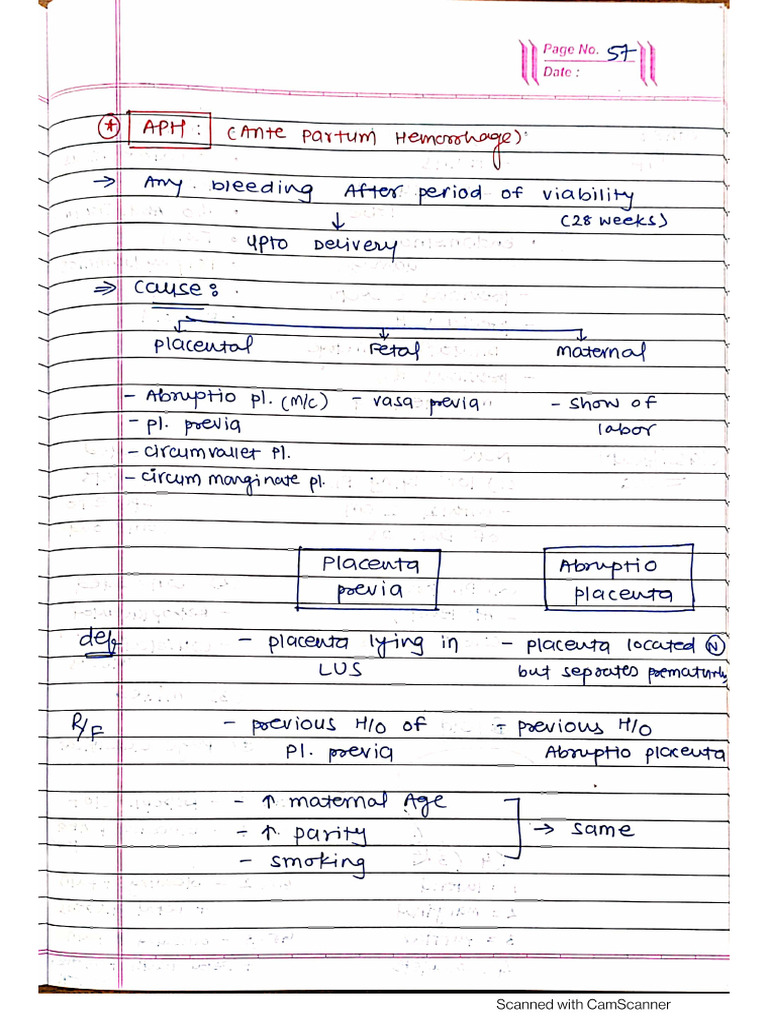 Page No. 57
Date :
* APH : (Ante Partum Hemorrhage):
→ Any bleeding After period of viability
↓ (28 weeks)
Upto Delivery
⇒ cause :
placental Fetal maternal
- Abruptio pl. (m/c) - vasa previa - show of
- pl. previa labor
- circumvallet Pl.
- circum marginate pl.
Placenta Abruptio
previa placenta
def - placenta lying in - placenta located (N)
LUS but seprates prematurly
R/F - previous H/O of - previous H/O
Pl. previa Abruptio placenta
- ↑ maternal Age
- ↑ parity → same
- smoking
Scanned with CamScanner